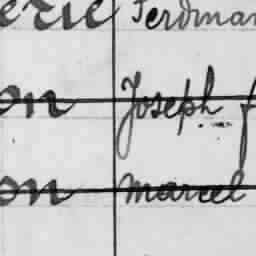 erie Ferdinan
on Joseph f
on Marcel